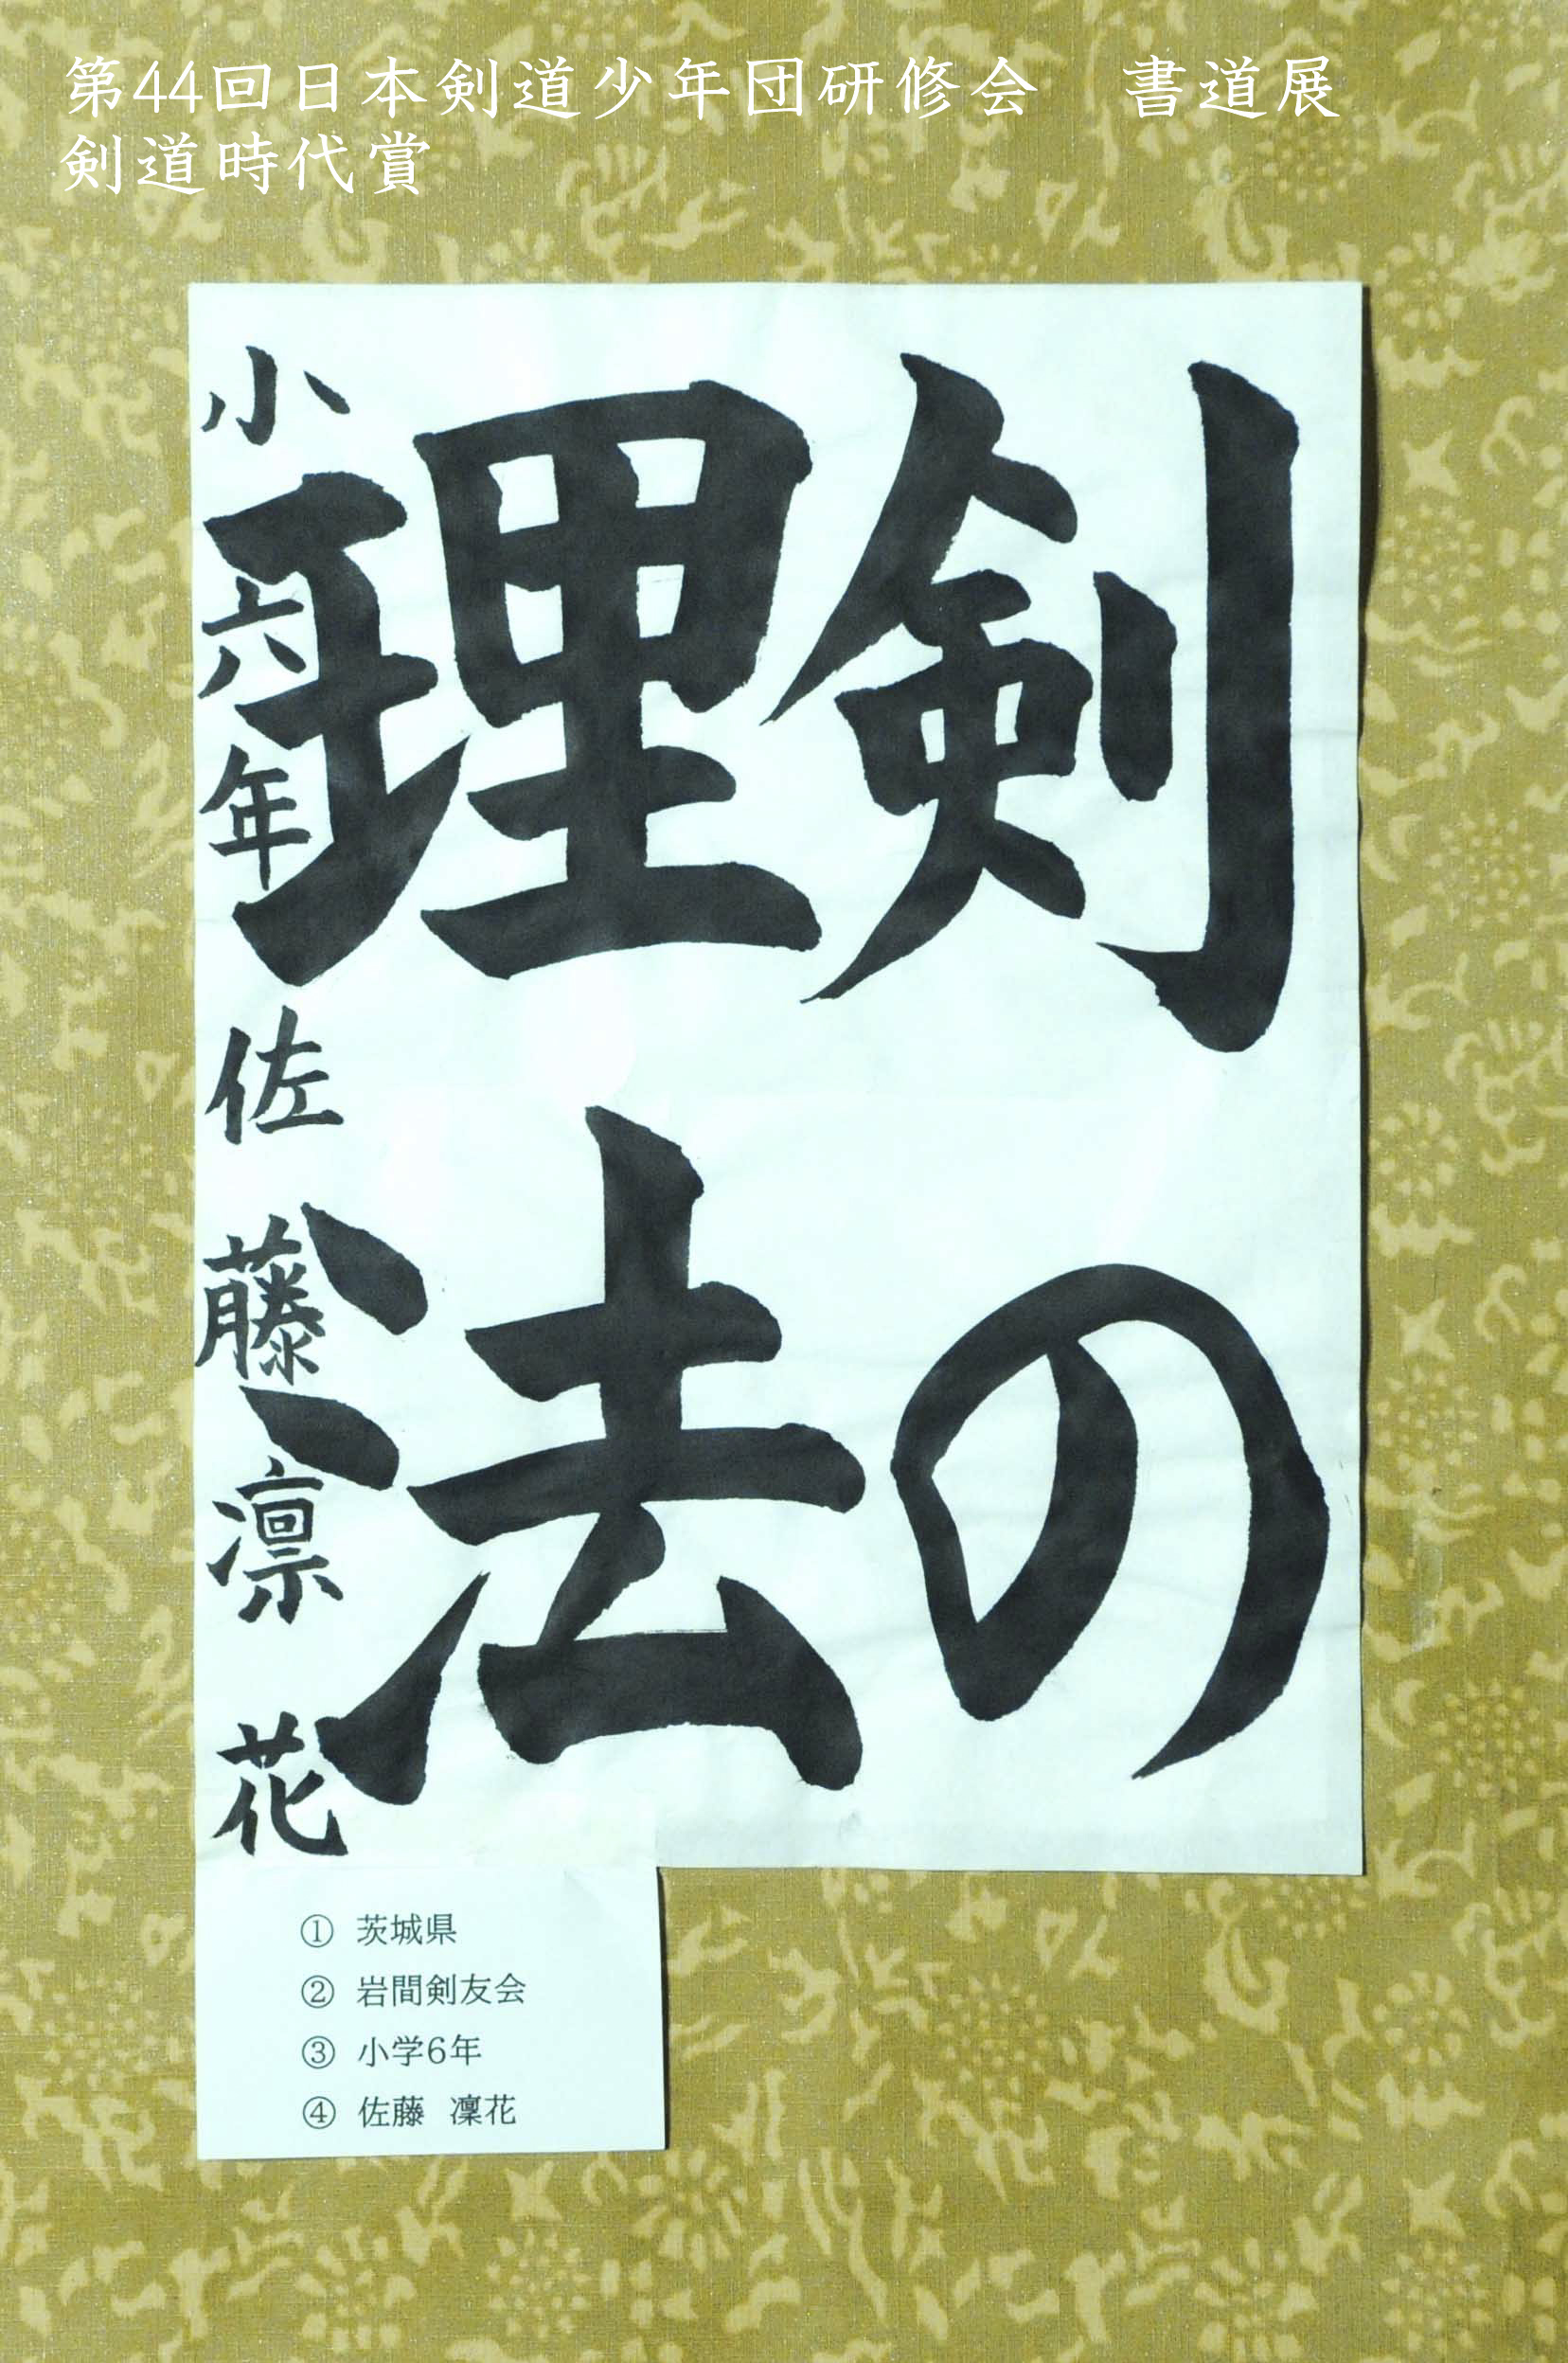 第44回日本剣道少年団研修会　書道展
剣道時代賞
剣の
理法
小六年 佐藤凛花
① 茨城県
② 岩間剣友会
③ 小学6年
④ 佐藤 凜花